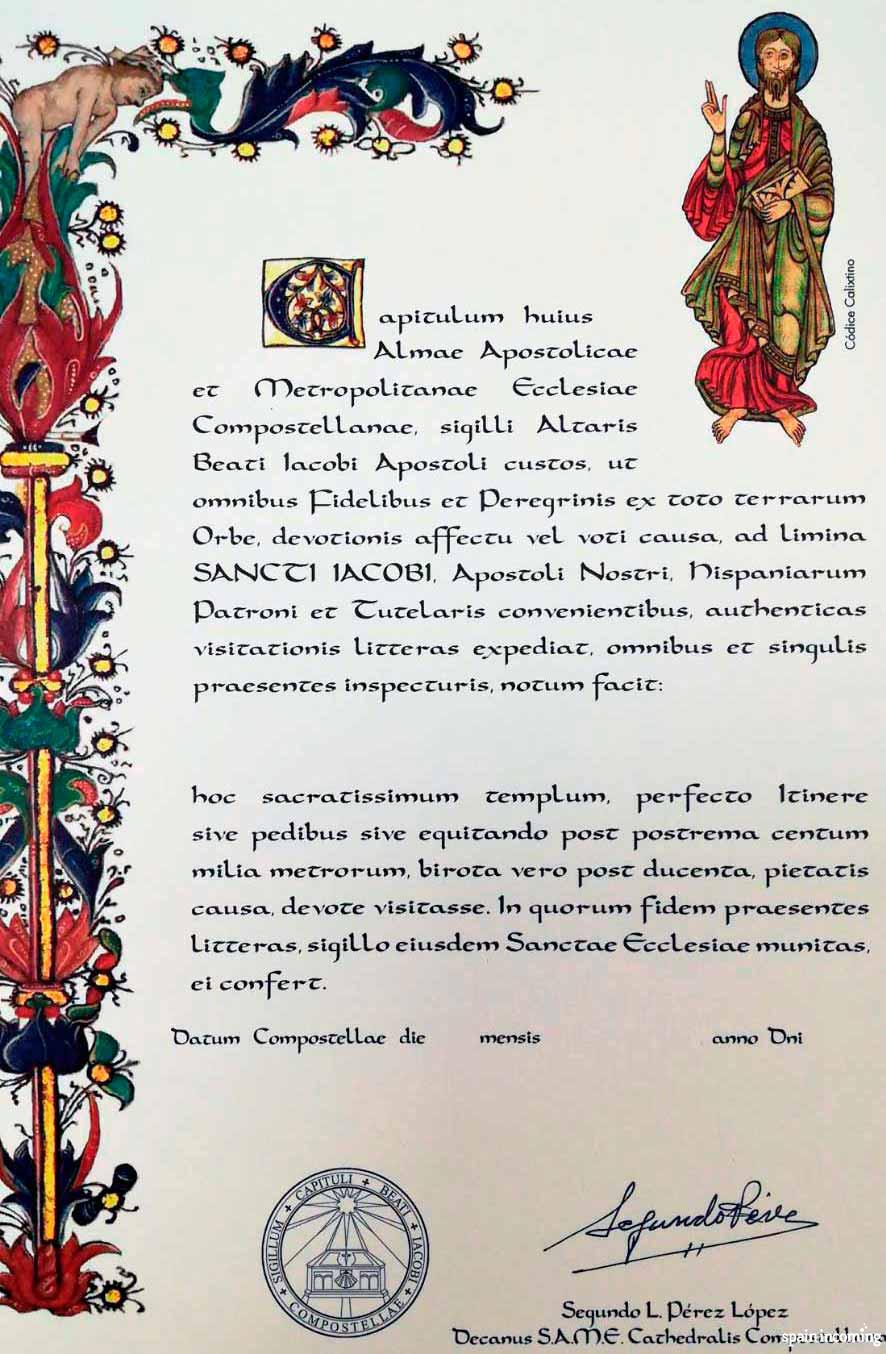 Capitulum huius
Almae Apostolicae
et Metropolitanae Ecclesiae
Compostellanae, sigilli Altaris
Beati Iacobi Apostoli custos, ut
omnibus Fidelibus et Peregrinis ex toto terrarum
Orbe, devotionis affectu vel voti causa, ad limina
SANCTI IACOBI, Apostoli Nostri, Hispaniarum
Patroni et Tutelaris convenientibus, authenticas
visitationis litteras expediat, omnibus et singulis
praesentes inspecturis, notum facit:
Códice Calixtino
hoc sacratissimum templum, perfecto Itinere
sive pedibus sive equitando post postrema centum
milia metrorum, birota vero post ducenta, pietatis
causa, devote visitasse. In quorum fidem praesentes
litteras, sigillo eiusdem Sanctae Ecclesiae munitas,
ei confert.
Datum Compostellae die mensis anno Dni
SIGILLUM + CAPITULI + BEATI + IACOBI + COMPOSTELLAE +
Segundo Pérez
Segundo L. Pérez López
Decanus S.A.M.E. Cathedralis
spain-incoming